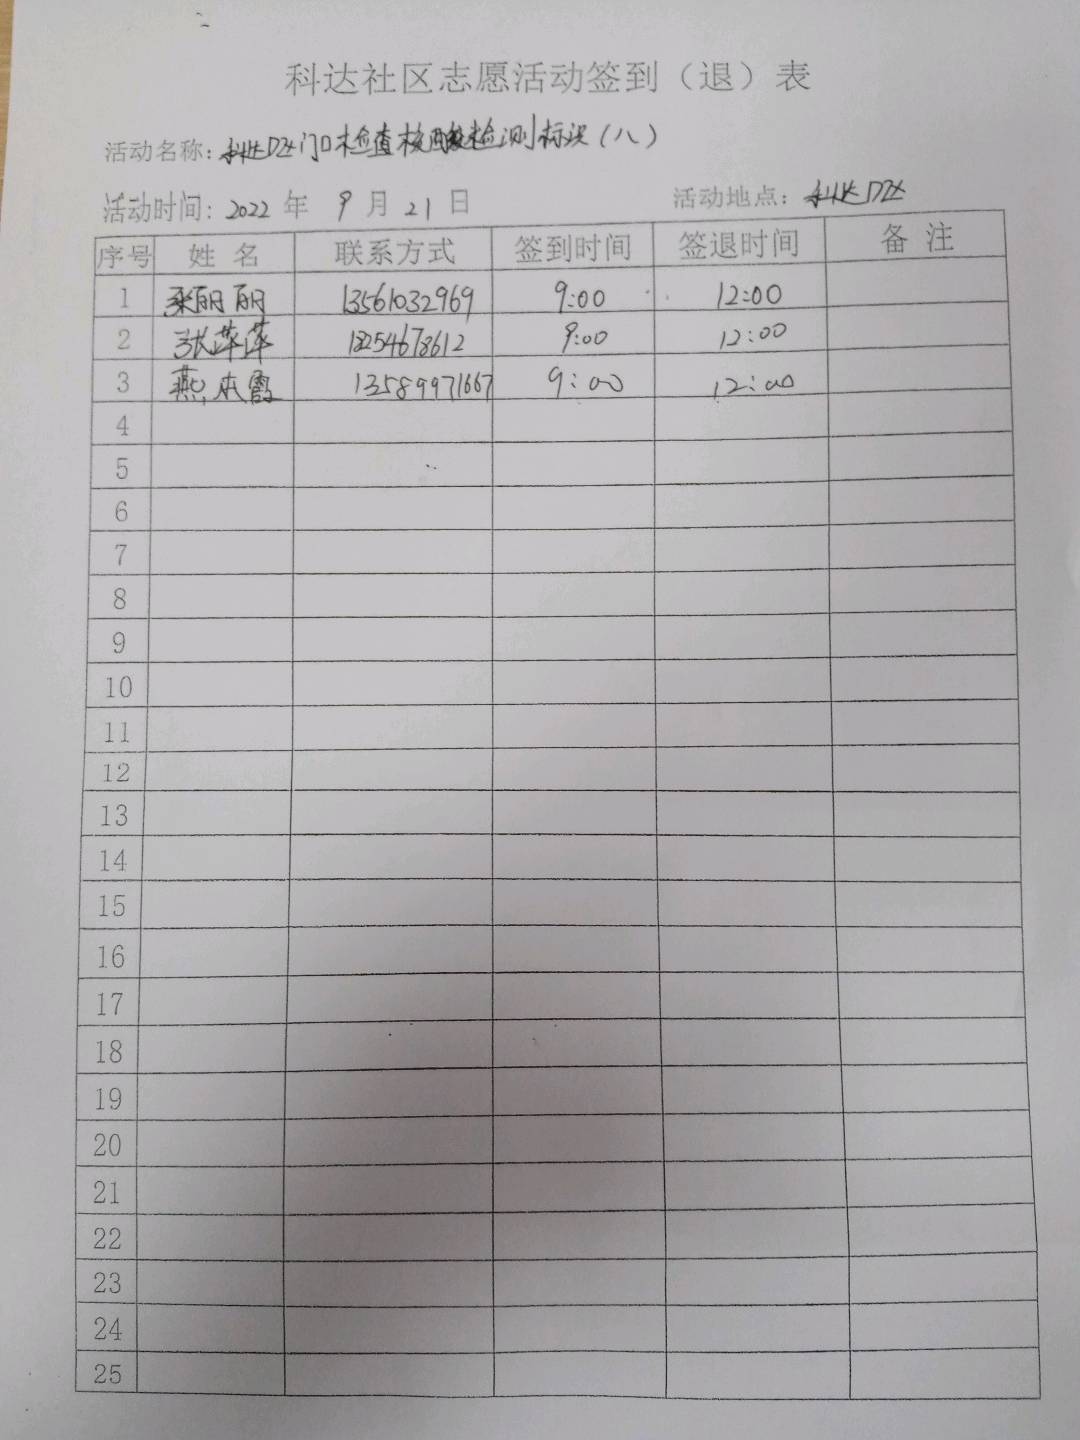 科达社区志愿活动签到（退）表
活动名称：科达小区门口检查核酸检测标识（八）
活动时间：2022 年 9 月 21 日 活动地点：
序号 姓名 联系方式 签到时间 签退时间 备注
1 丽丽 13561032969 9:00 12:00
2 张萍萍 18254678612 9:00 12:00
3 燕本霞 13589971667 9:00 12:00
4
5
6
7
8
9
10
11
12
13
14
15
16
17
18
19
20
21
22
23
24
25